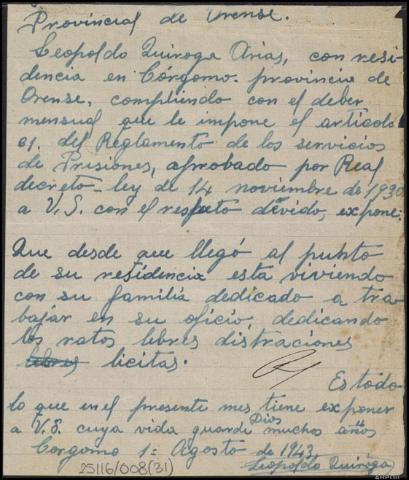 Provincial de Orense.
Leopoldo Quiroga Arias, con resi
dencia en Corgomo. provincia de
Orense, compliendo con el deber
mensual que le impone el articolo
91. del Reglamento de los servicios
de Prisiones, afrobado por Real
decreto-ley de 14 noviembre de 1930
a V.S. con el respeto devido, expone:
Que desde que llegó al puhto
de su residencia esta viviendo
con su familia dedicado a tra
bajar en su oficio, dedicando
los ratos lebres distraciones
lebres licitas.
Es todo
lo que en el presente mes tiene exponer
a V.S. cuya vida guarde Dios muchos años
Corgomo 1º Agosto de 1943,
Leopoldo Quiroga
25116/008(31)